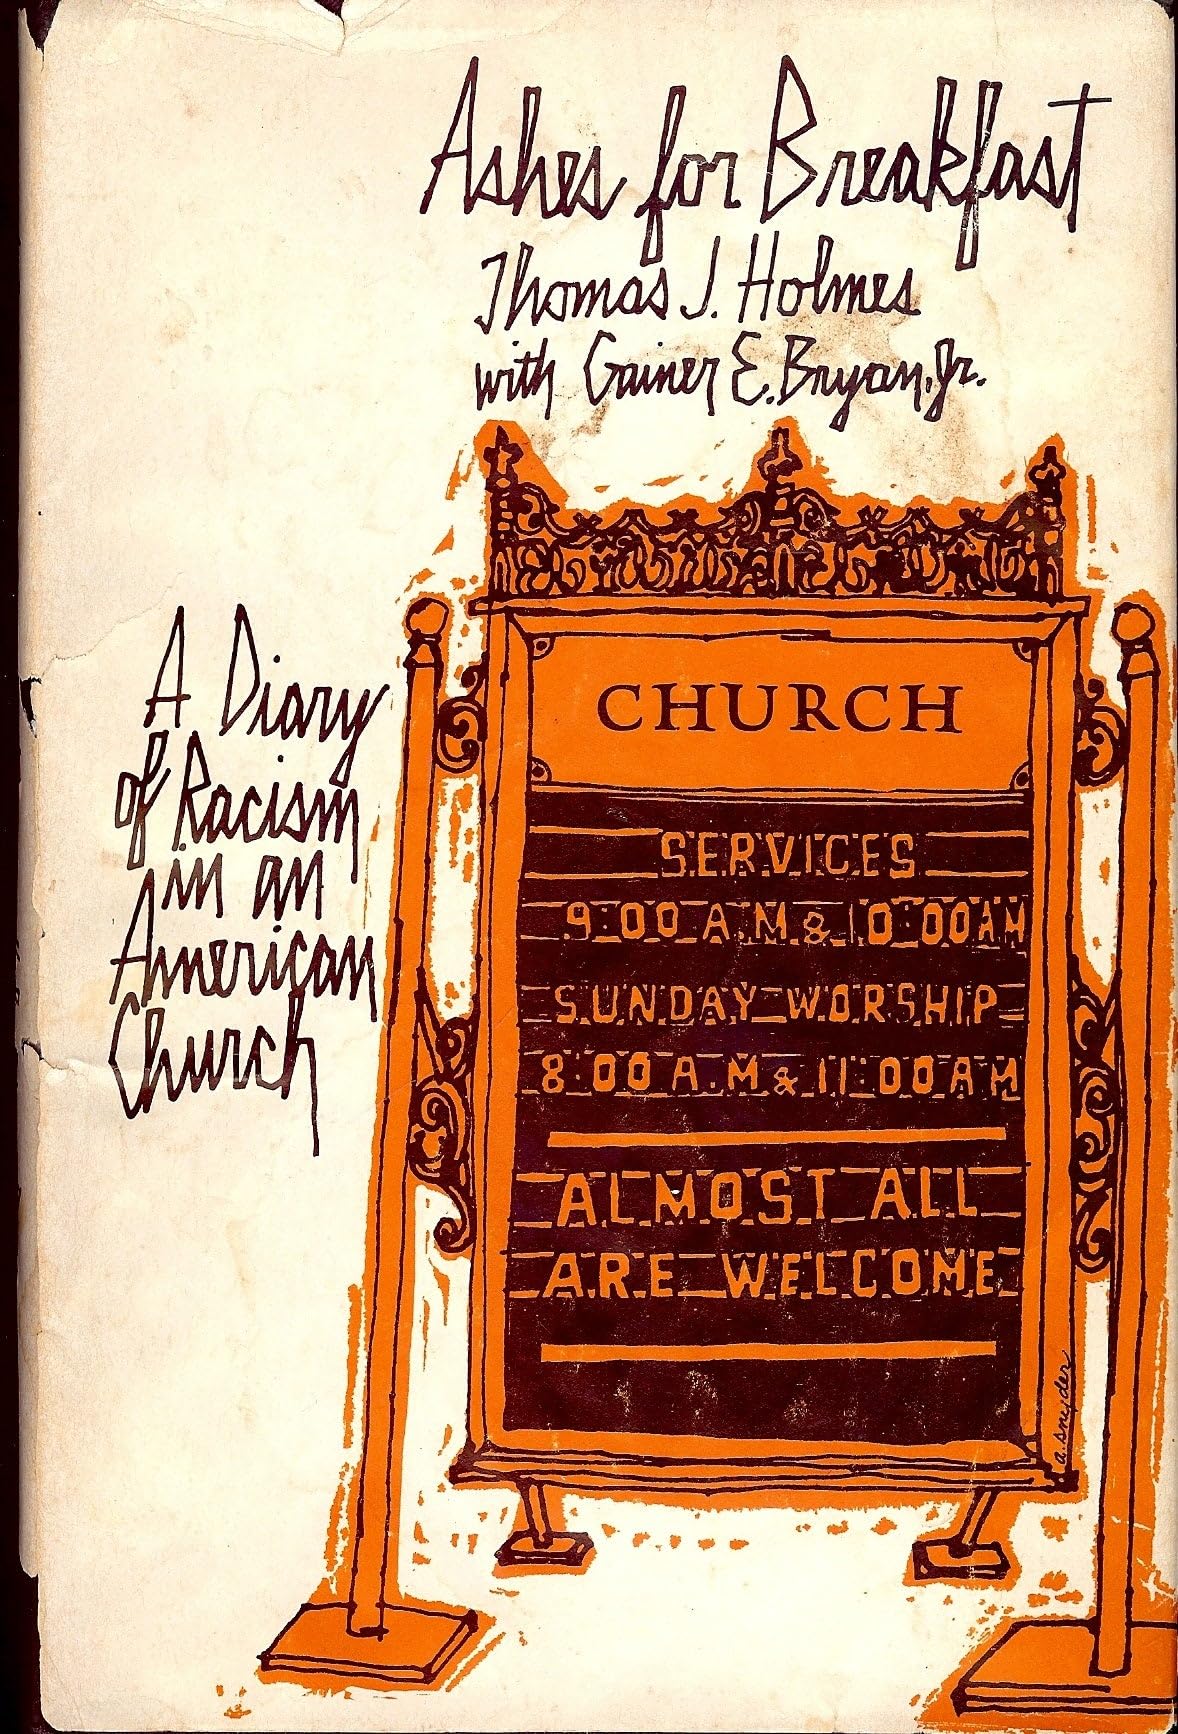 Ashes for Breakfast
Thomas J. Holmes
with Gainer E. Bryan, Jr.
A Diary
of Racism
in an
American
Church
CHURCH
SERVICES
9:00 A.M & 10:00AM
SUNDAY WORSHIP
8:00 A.M & 11:00AM
ALMOST ALL
ARE WELCOME
a. snyder